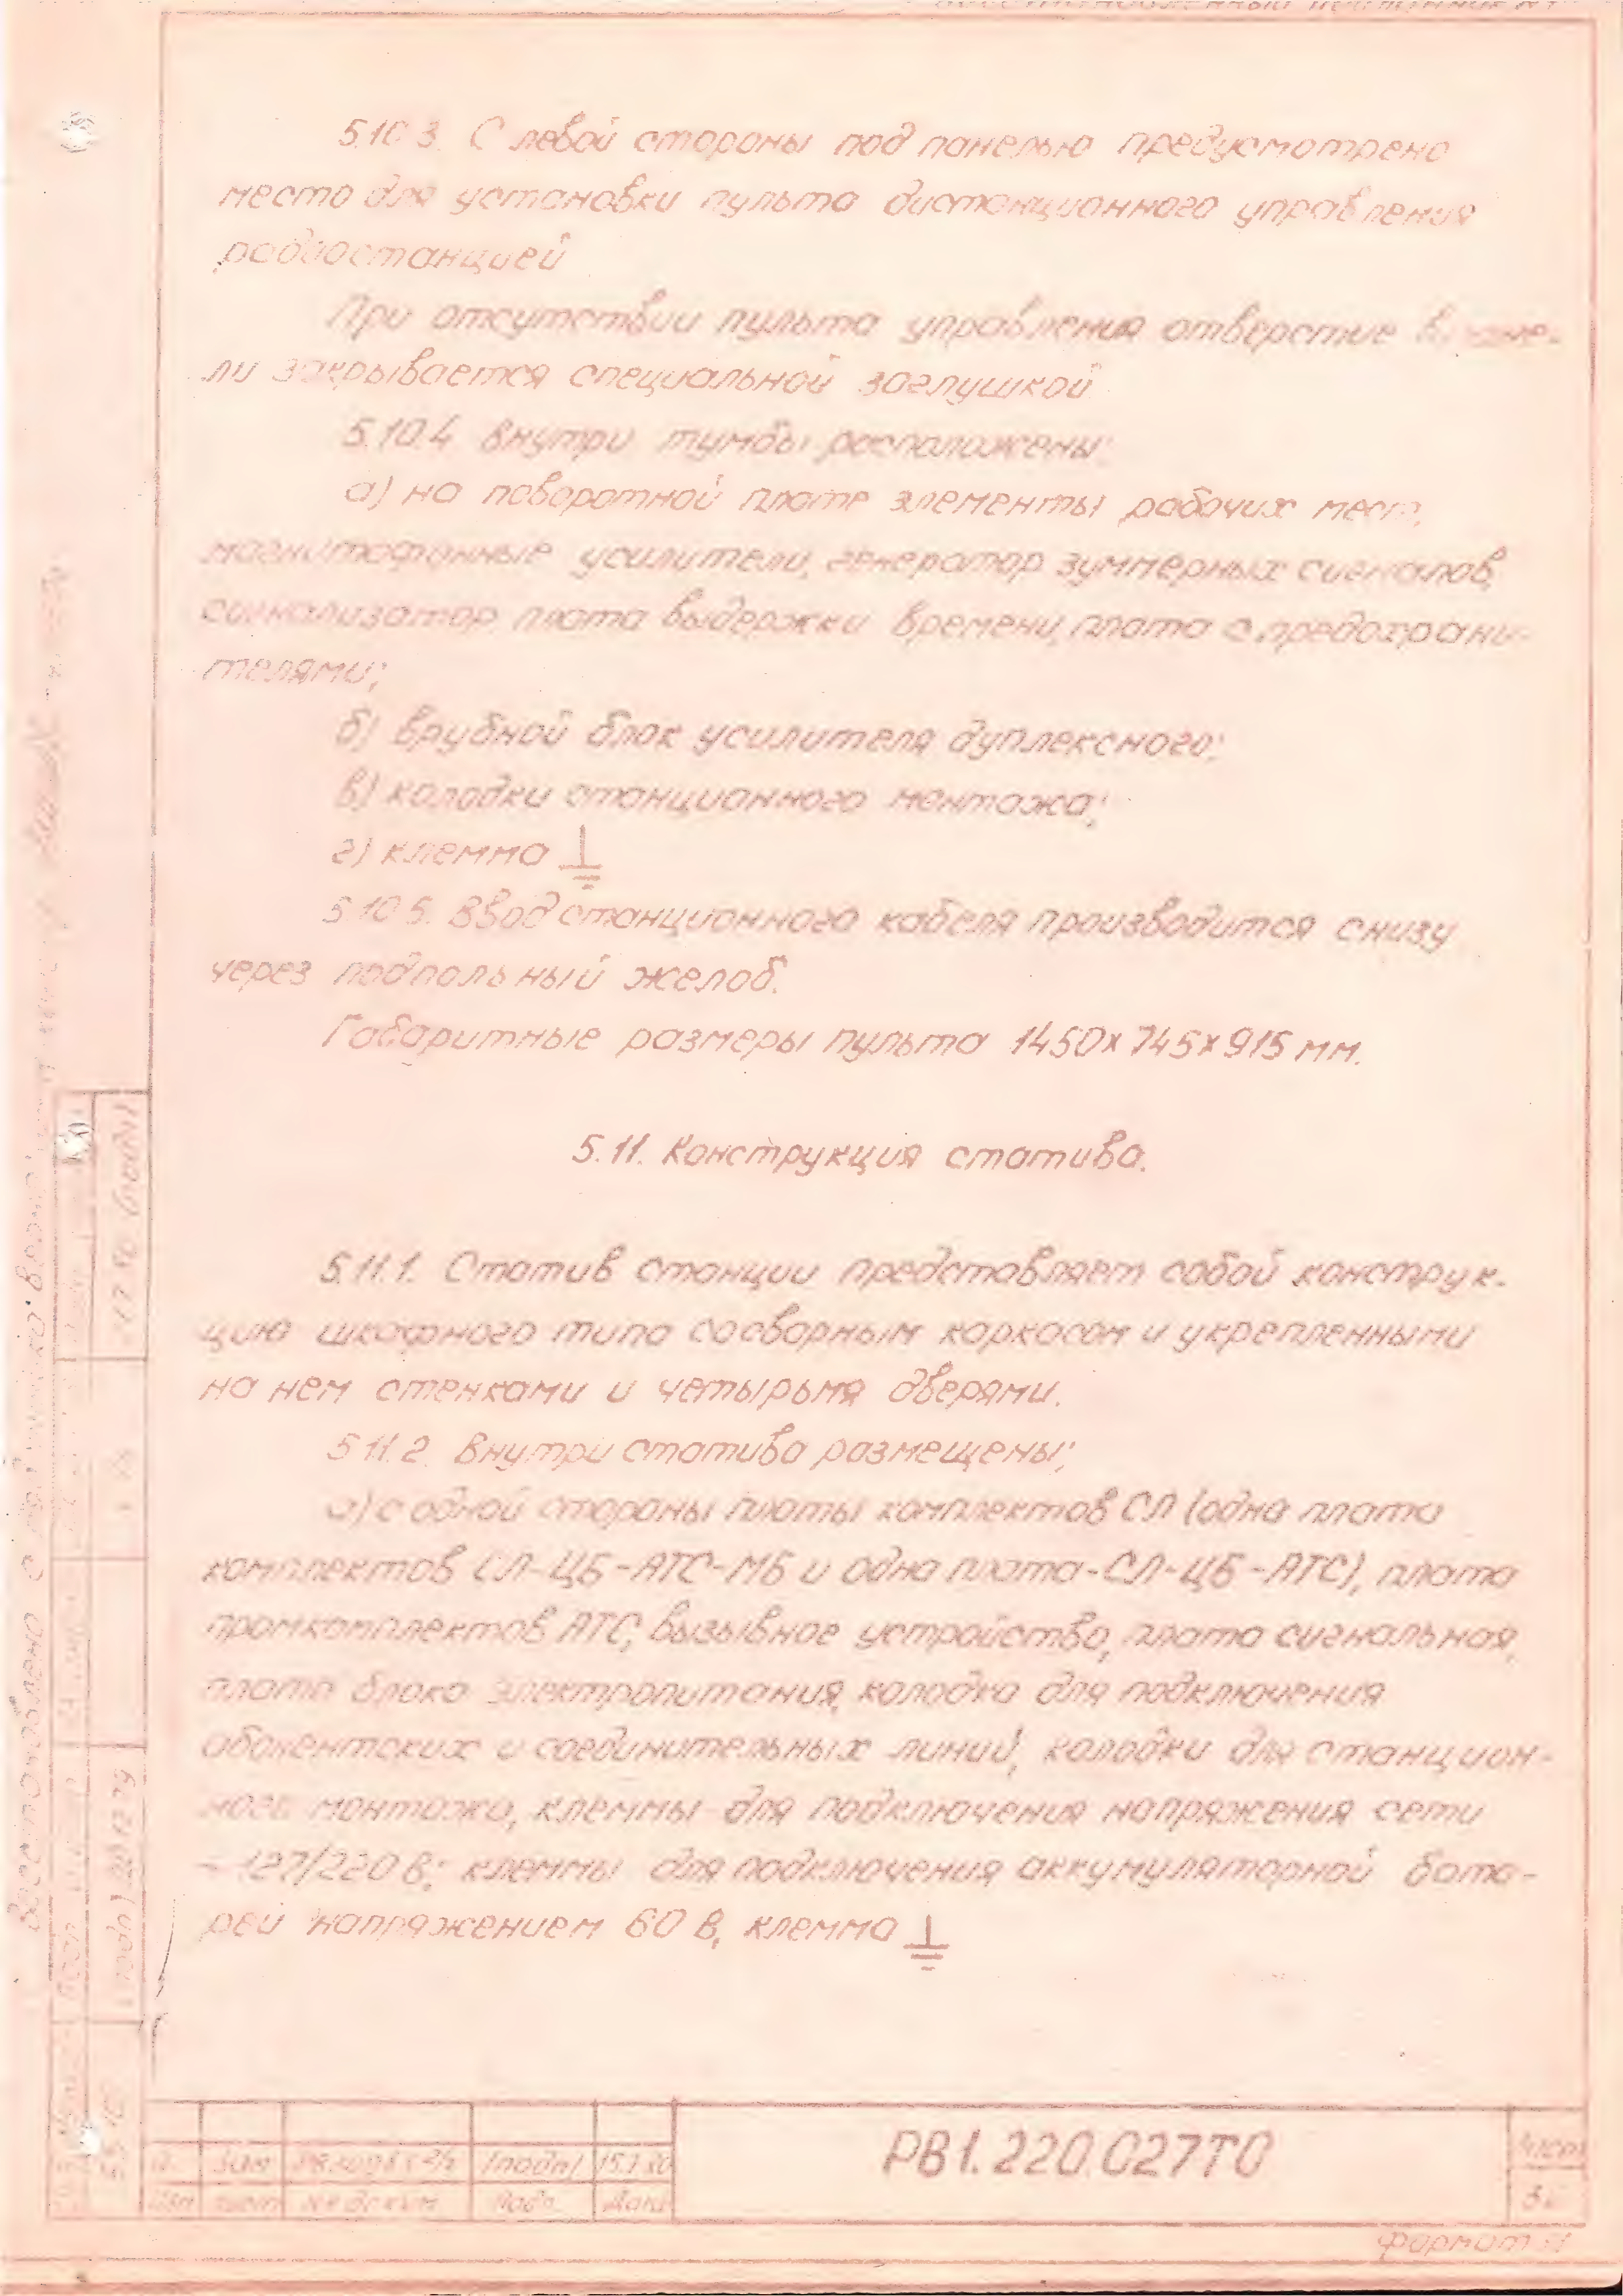 5.10.3. С левой стороны под панелью предусмотрено
место для установки пульта дистанционного управления
радиостанцией
При отсутствии пульта управления отверстие в пане-
ли закрывается специальной заглушкой
5.10.4. Внутри тумбы расположены:
а) на поворотной плате элементы рабочих мест,
магнитофонные усилители, генератор зуммерных сигналов,
сигнализатор, плата выдержки времени, плата с предохрани-
телями;
б) врубной блок усилителя дуплексного;
в) колодки станционного монтажа;
г) клемма ⏚
5.10.5. Ввод станционного кабеля производится снизу
через подпольный желоб.
Габаритные размеры пульта 1450х745х915 мм.
5.11. Конструкция статива.
5.11.1. Статив станции представляет собой конструк-
цию шкафного типа со сборным каркасом и укрепленными
на нем стенками и четырьмя дверями.
5.11.2. Внутри статива размещены;
а) с одной стороны платы комплектов СЛ (одна плата
комплектов СЛ-ЦБ-АТС-МБ и одна плата-СЛ-ЦБ-АТС), плата
промкомплектов АТС, вызывное устройство, плата сигнальная,
плата блока электропитания, колодка для подключения
абонентских и соединительных линий, колодки для станцион-
ного монтажа, клеммы для подключения напряжения сети
~ 127/220 В; клеммы для подключения аккумуляторной бата-
реи напряжением 60 В, клемма ⏚
Зам
(подп)
Изм лист № докум. Подп. Дата
РВ1.220.027ТО
Лист
Формат 11